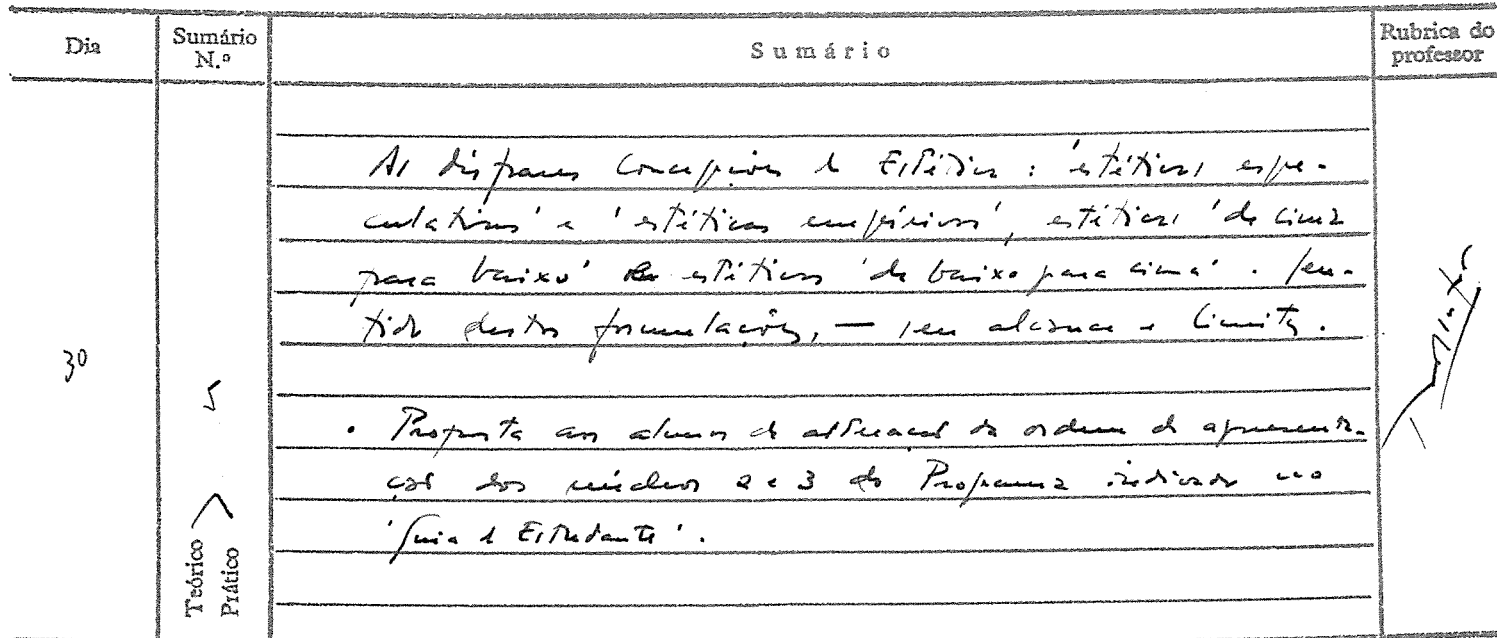 Dia
Sumário N.º
Sumário
Rubrica do professor
As concepções de Estética: 'estéticas espe-
culativas' e 'estéticas empíricas', estéticas 'de cima
para baixo' estéticas 'de baixo para cima'. Sen-
tido destas formulações, — seu alcance e limites.
30
5
• Proposta aos alunos de alteração da ordem de apresenta-
ção dos núcleos 2 e 3 do Programa indicado no
'Guia do Estudante'.
Teórico
Prático